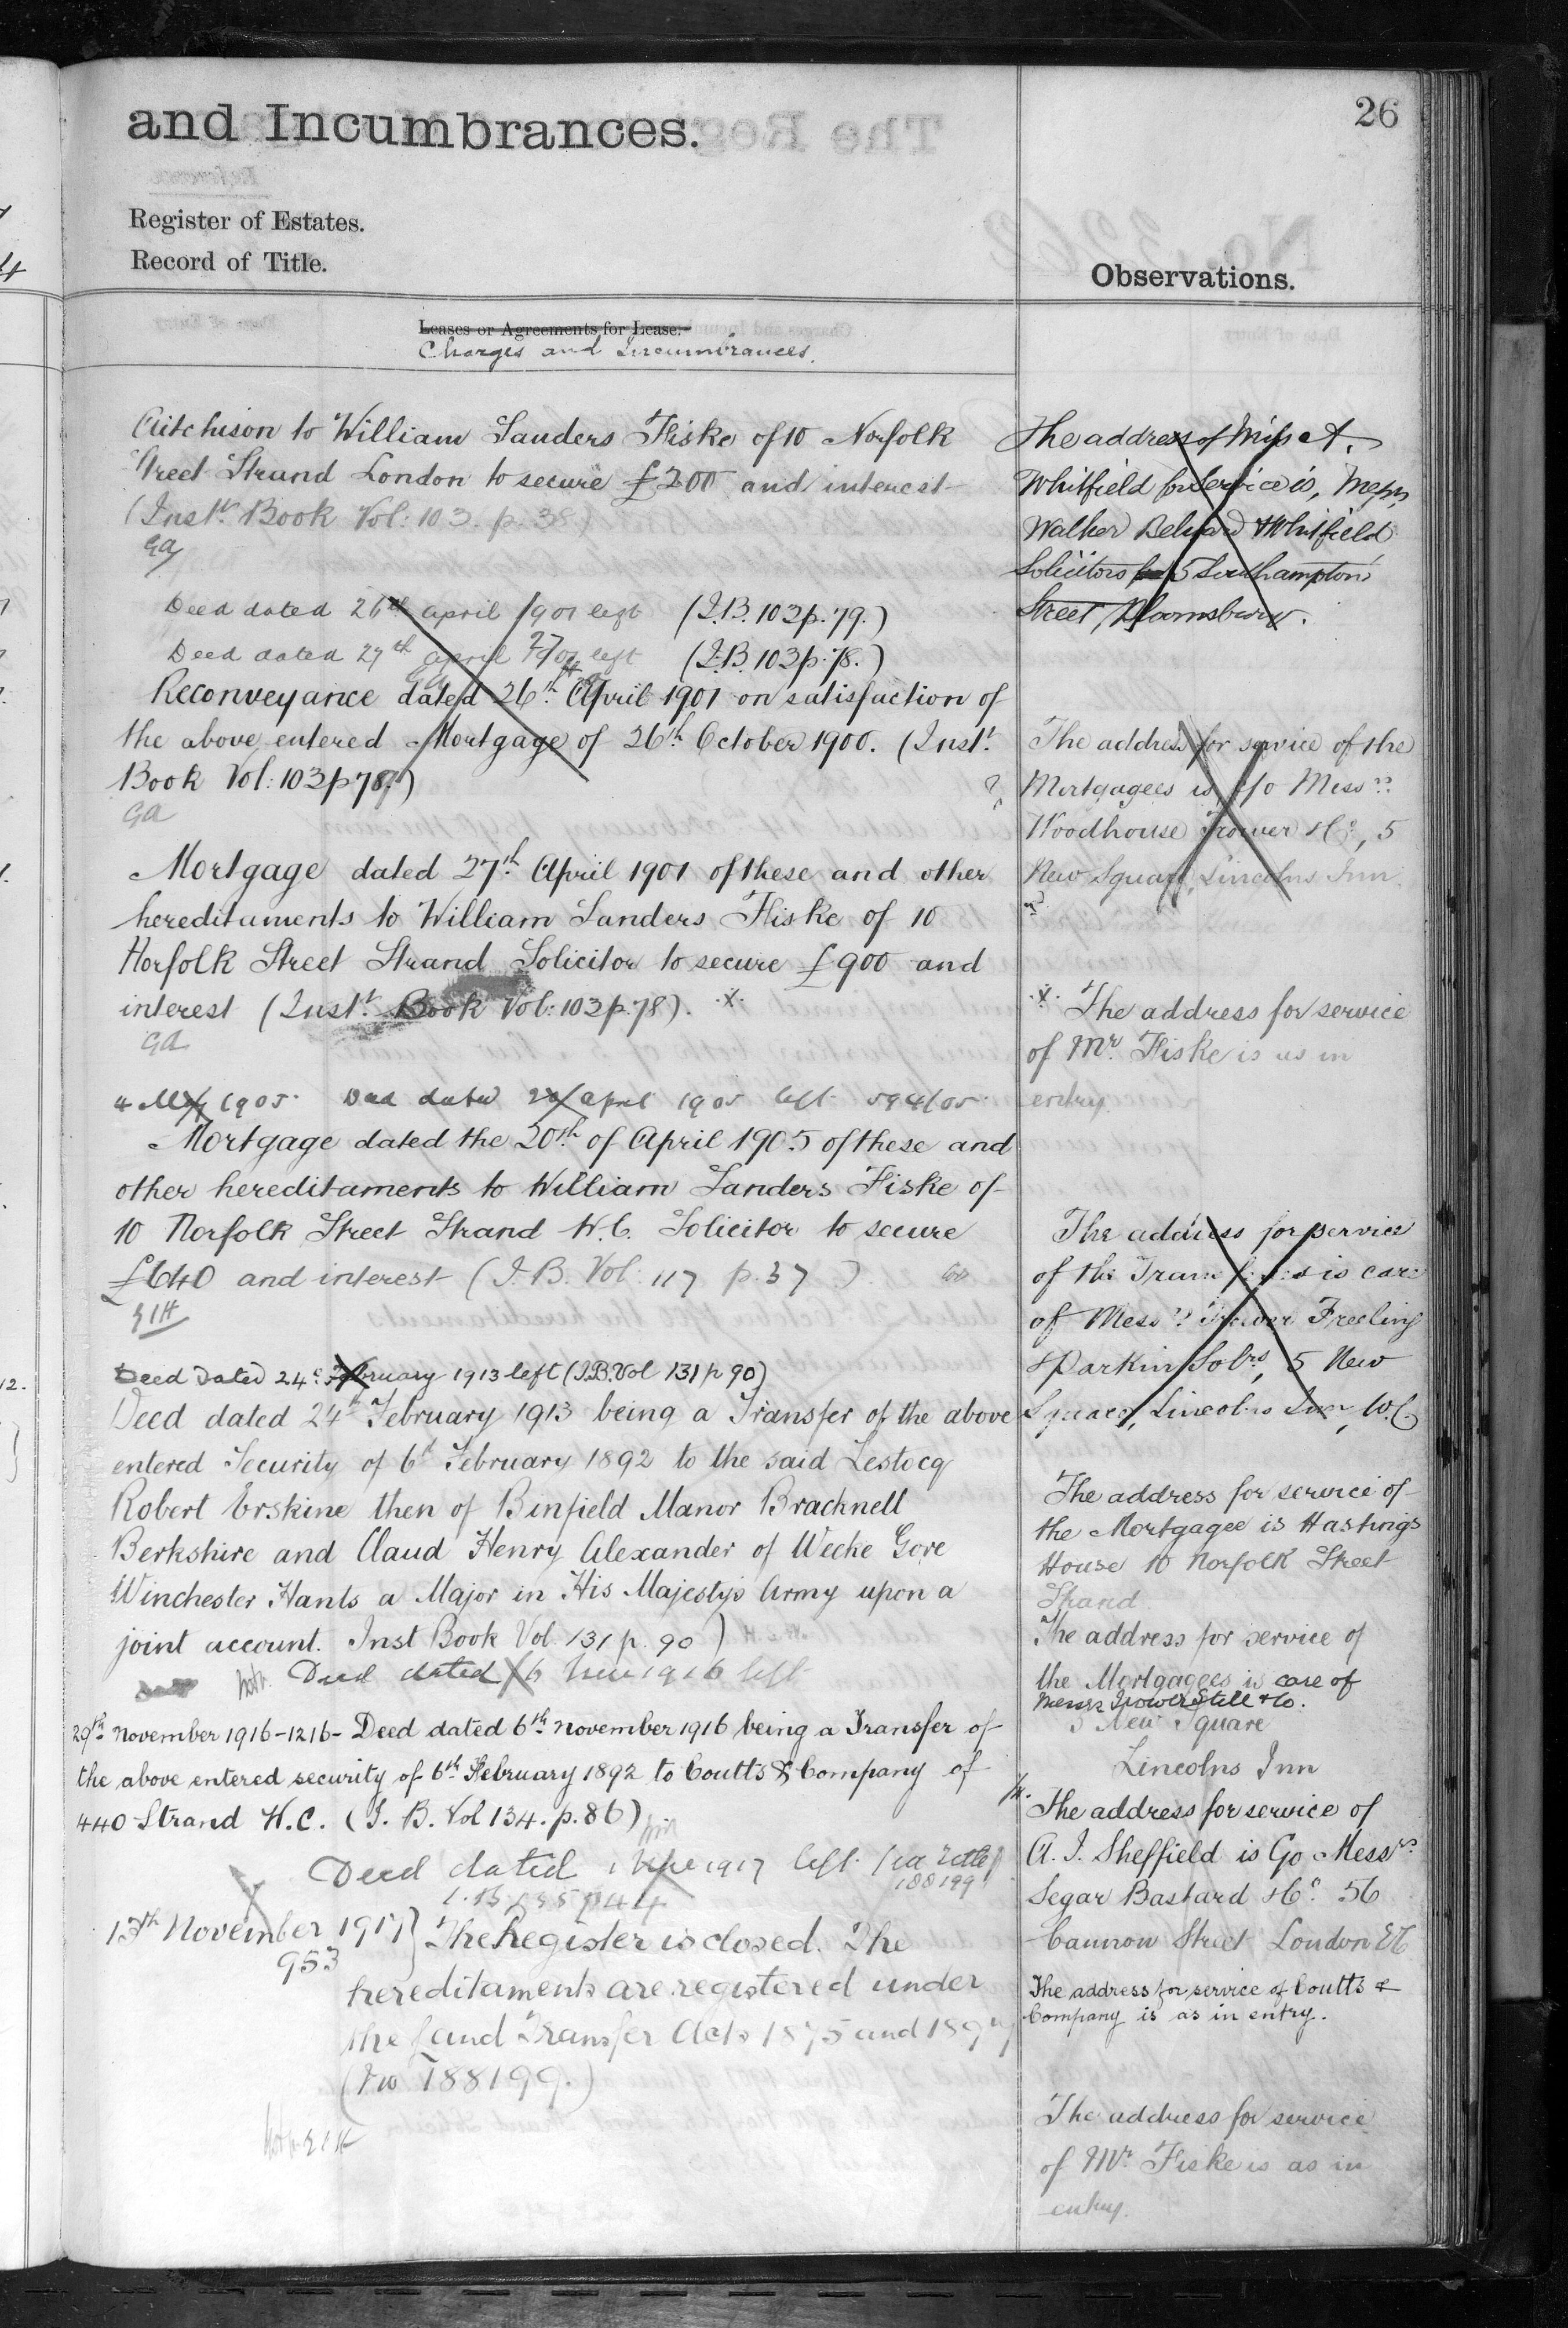 26
and Incumbrances.
Register of Estates.
Record of Title.
Observations.
Leases or Agreements for Lease.
Charges and Incumbrances.
Aitchison to William Sanders Fiske of 10 Norfolk
Street Strand London to secure £200 and interest
(Inst. Book Vol: 103. p. 38)
GA
Deed dated 26th April 1901 left (I.B. 103 p. 79.)
Deed dated 27th April 1901 left (I.B. 103 p. 78.)
Reconveyance dated 26th April 1901 on satisfaction of
the above entered Mortgage of 26th October 1900. (Inst.
Book Vol: 103 p 78.)
GA
Mortgage dated 27th April 1901 of these and other
hereditaments to William Sanders Fiske of 10
Norfolk Street Strand Solicitor to secure £900 and
interest (Inst. Book Vol: 103 p. 78). .x.
GA
4 May 1905. Deed dated 20 April 1905 left 594/05
Mortgage dated the 20th of April 1905 of these and
other hereditaments to William Sanders Fiske of
10 Norfolk Street Strand W.C. Solicitor to secure
£640 and interest (I.B. Vol 117 p. 37)
Deed dated 24 February 1913 left (I.B. Vol 131 p 90)
Deed dated 24th February 1913 being a Transfer of the above
entered Security of 6th February 1892 to the said Lestocq
Robert Erskine then of Binfield Manor Bracknell
Berkshire and Claud Henry Alexander of Weeke Gore
Winchester Hants a Major in His Majestys Army upon a
joint account. Inst Book Vol. 131 p. 90)
Deed dated 6 1916 left
29th November 1916-1216- Deed dated 6th November 1916 being a Transfer of
the above entered security of 6th February 1892 to Coutts & Company of
440 Strand W.C. (I. B. Vol 134. p. 86)
Deed dated 1917 left
188199
I.B. 135 p 44
13th November 1917} The Register is closed. The
953
hereditaments are registered under
the Land Transfer Acts 1875 and 1897
(No 188199.)
The address of Miss A.
Whitfield for Service is, Messrs
Walker & Whitfield
Solicitors 5 Southampton
Street, Bloomsbury.
The address for service of the
Mortgagees is c/o Messrs
Woodhouse Trower & Co, 5
New Square, Lincolns Inn.
.x. The address for service
of Mr. Fiske is as in
entry.
The address for service
of the Transferees is care
of Messrs Trower Freeling
& Parkin Solrs, 5 New
Square, Lincolns Inn, W.C.
The address for service of
the Mortgagee is Hastings
House 10 Norfolk Street
Strand.
The address for service of
the Mortgagees is care of
Messrs Trower Still & Co.
5 New Square
Lincolns Inn
The address for service of
A. J. Sheffield is c/o Messrs.
Segar Bastard & Co. 56
Cannon Street London EC
The address for service of Coutts &
Company is as in entry.
The address for service
of Mr. Fiske is as in
entry.